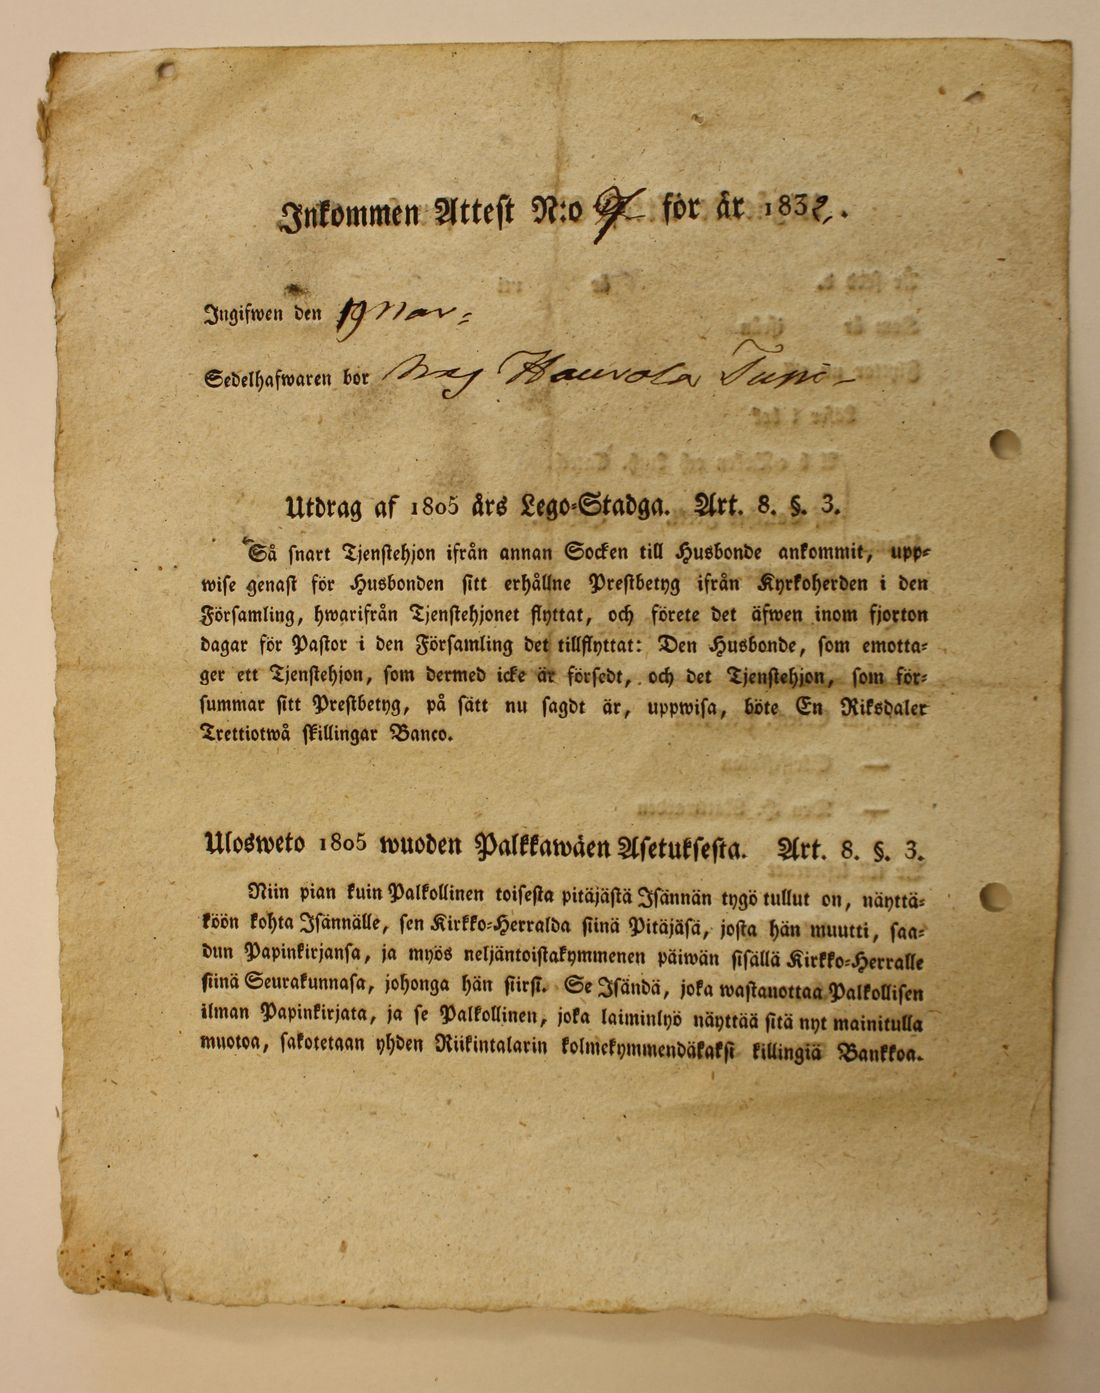 Inkommen Attest N:o 7 för år 1832.
Ingifwen den 19 Mar=
Sedelhafwaren bor Haurola
Utdrag af 1805 års Lego=Stadga. Art. 8. §. 3.
Så snart Tjenstehjon ifrån annan Socken till Husbonde ankommit, upp=
wise genast för Husbonden sitt erhållne Prestbetyg ifrån Kyrkoherden i den
Församling, hwarifrån Tjenstehjonet flyttat, och förete det äfwen inom fjorton
dagar för Pastor i den Församling det tillflyttat: Den Husbonde, som emotta=
ger ett Tjenstehjon, som dermed icke är försedt, och det Tjenstehjon, som för=
summar sitt Prestbetyg, på sätt nu sagdt är, uppwisa, böte En Riksdaler
Trettiotwå skillingar Banco.
Ulosweto 1805 wuoden Palkkawäen Asetuksesta. Art. 8. §. 3.
Niin pian kuin Palkollinen toisesta pitäjästä Isännän tygö tullut on, näyttä=
köön kohta Isännälle, sen Kirkko=Herralda siinä Pitäjäsä, josta hän muutti, saa=
dun Papinkirjansa, ja myös neljäntoistakymmenen päiwän sisällä Kirkko=Herralle
siinä Seurakunnasa, johonga hän siirsi. Se Isändä, joka wastanottaa Palkollisen
ilman Papinkirjata, ja se Palkollinen, joka laiminlyö näyttää sitä nyt mainitulla
muotoa, sakotetaan yhden Riikintalarin kolmekymmendäkaksi killingiä Bankkoa.